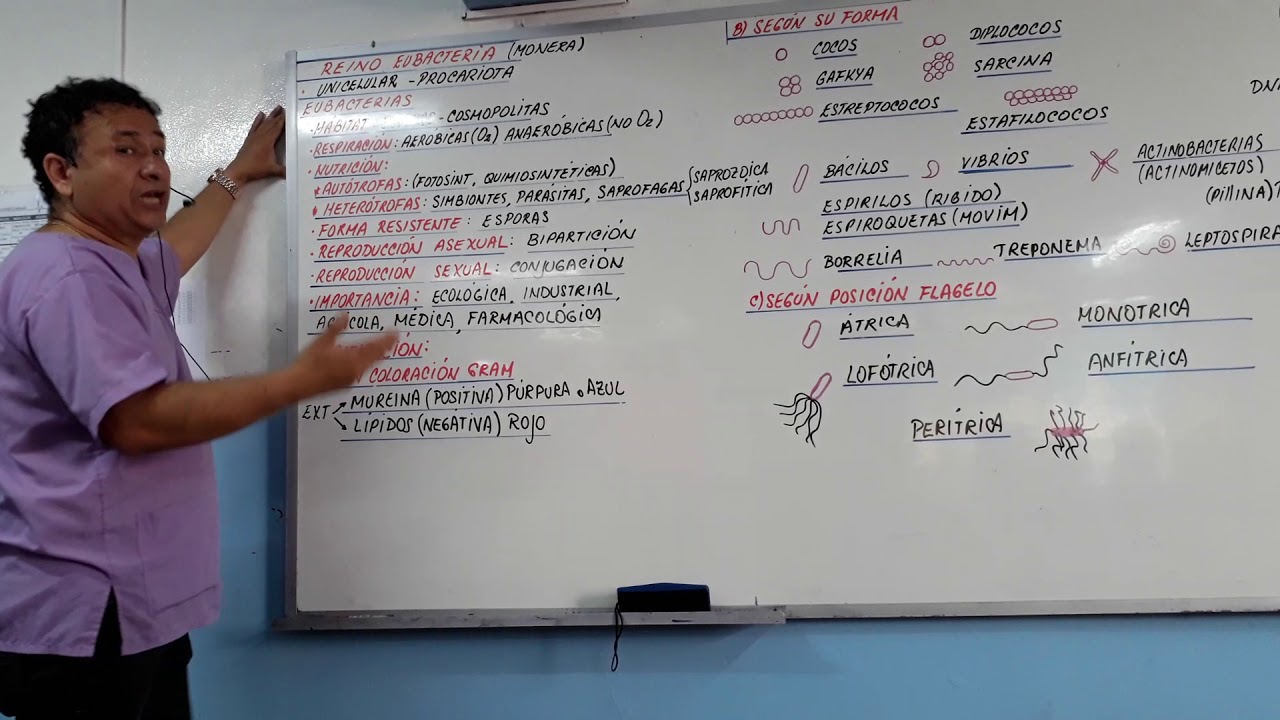 REINO EUBACTERIA (MONERA)
· UNICELULAR - PROCARIOTA
EUBACTERIAS
· HÁBITAT - COSMOPOLITAS
· RESPIRACIÓN: AEROBICAS (O2) ANAERÓBICAS (NO O2)
· NUTRICIÓN:
* AUTÓTROFAS: (FOTOSINT, QUIMIOSINTÉTICAS)
* HETERÓTROFAS: SIMBIONTES, PARÁSITAS, SAPROFAGAS { SAPROZOICA
SAPROFITICA
· FORMA RESISTENTE: ESPORAS
· REPRODUCCIÓN ASEXUAL: BIPARTICIÓN
· REPRODUCCIÓN SEXUAL: CONJUGACIÓN
· IMPORTANCIA: ECOLÓGICA, INDUSTRIAL,
MÉDICA, FARMACOLÓGICA
COLORACIÓN GRAM
EXT MUREINA (POSITIVA) PÚRPURA o AZUL
LÍPIDOS (NEGÁTIVA) ROJO
B) SEGÚN SU FORMA
COCOS DIPLOCOCOS
GAFKYA SARCINA
ESTREPTOCOCOS ESTAFILOCOCOS
BÁCILOS VIBRIOS ACTINOBACTERIAS
(ACTINOMICETOS)
(PILLINA)
ESPIRILOS (RIGIDO)
ESPIROQUETAS (MOVIM)
BORRELIA TREPONEMA LEPTOSPIRA
C) SEGÚN POSICIÓN FLAGELO
ÁTRICA MONOTRICA
LOFÓTRICA ANFÍTRICA
PERÍTRICA